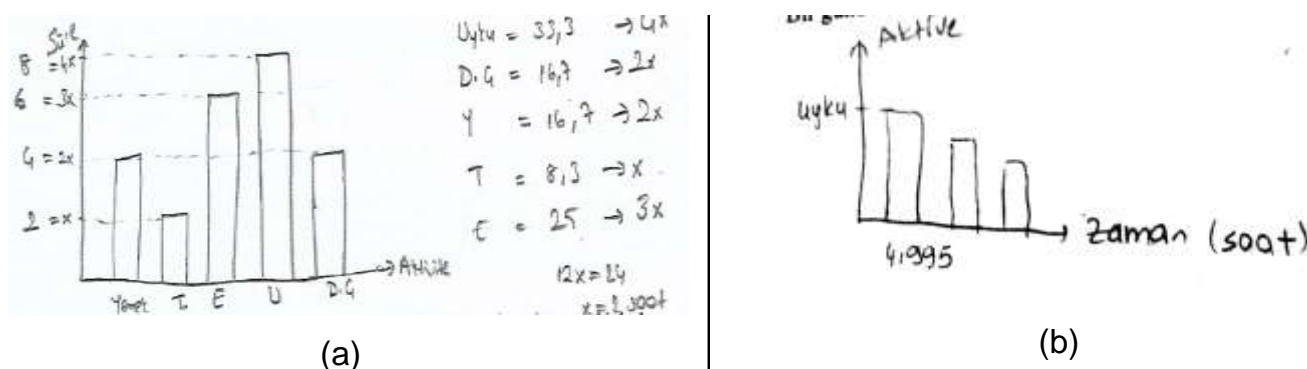 Süre
8 = 4x
6 = 3x
4 = 2x
2 = x
Yemek T E U D.G
Aktivite
Uyku = 33,3 → 4x
D.G = 16,7 → 2x
Y = 16,7 → 2x
T = 8,3 → x
E = 25 → 3x
12x = 24
x = 2 saat
(a)
Aktive
uyku
4,995
Zaman (saat)
(b)